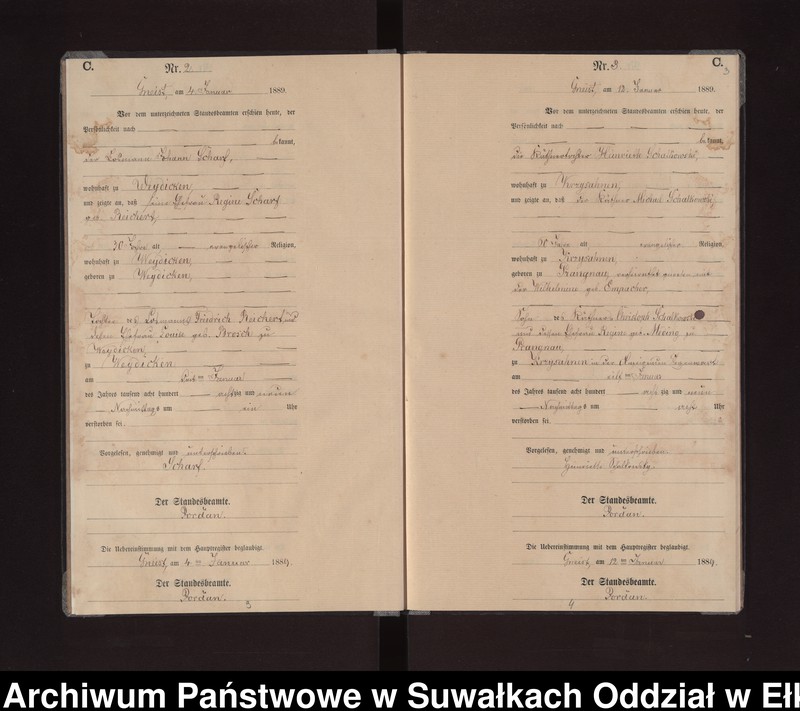 C.
Nr. 2.
Gneist, am 4ten Januar 1889.
Vor dem unterzeichneten Standesbeamten erschien heute, der
Persönlichkeit nach
bekannt,
der Losmann Johann Scharf,
wohnhaft zu Weydicken,
und zeigte an, daß seine Ehefrau Regine Scharf
geb. Reichert,
30 Jahre alt evangelischer Religion,
wohnhaft zu Weydicken,
geboren zu Weydicken,
Tochter des Losmanns Friedrich Reichert und
dessen Ehefrau Louise geb. Brosch zu
Weydicken,
zu Weydicken
am ten Januar
des Jahres tausend acht hundert achtzig und neun
Nachmittags um ein Uhr
verstorben sei.
Vorgelesen, genehmigt und unterschrieben
Scharf.
Der Standesbeamte.
Pordan.
Die Uebereinstimmung mit dem Hauptregister beglaubigt.
Gneist, am 4ten Januar 1889.
Der Standesbeamte.
Pordan.
3
C.
3
Nr. 3
Gneist, am 12. Januar 1889.
Vor dem unterzeichneten Standesbeamten erschien heute, der
Persönlichkeit nach
bekannt,
die Käthnertochter Heinriette Schalkowski,
wohnhaft zu Krzysahnen,
und zeigte an, daß der Käthner Michael Schalkowski,
Jahre alt evangelischer Religion,
wohnhaft zu Krzysahnen,
geboren zu Grangnau, verheirathet gewesen mit
der Wilhelmine geb. Empacher,
Sohn des Käthners Christoph Schalkowski
und dessen Ehefrau Regine geb. zu
Grangnau,
zu Krzysahnen in der Gegenwart
am elften Januar
des Jahres tausend acht hundert achtzig und neun
Nachmittags um acht Uhr
verstorben sei.
Vorgelesen, genehmigt und unterschrieben
Der Standesbeamte.
Pordan.
Die Uebereinstimmung mit dem Hauptregister beglaubigt.
Gneist, am 12ten Januar 1889.
Der Standesbeamte.
Pordan.
4
Archiwum Państwowe w Suwałkach Oddział w Ełk